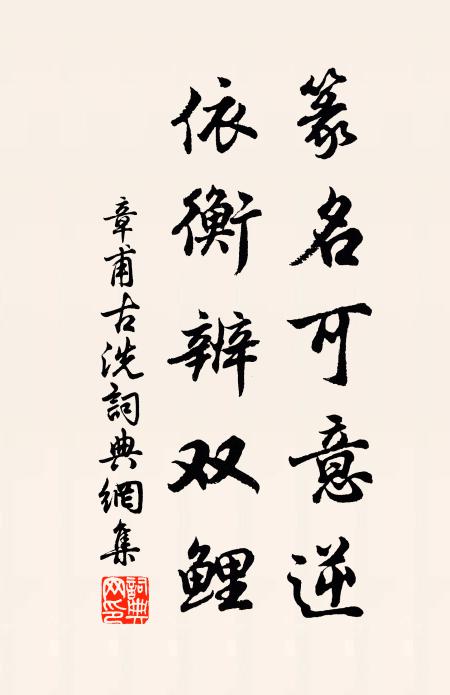 篆名可意逆
依衡辨双鲤
章甫古洗詞典網集
詞典网印